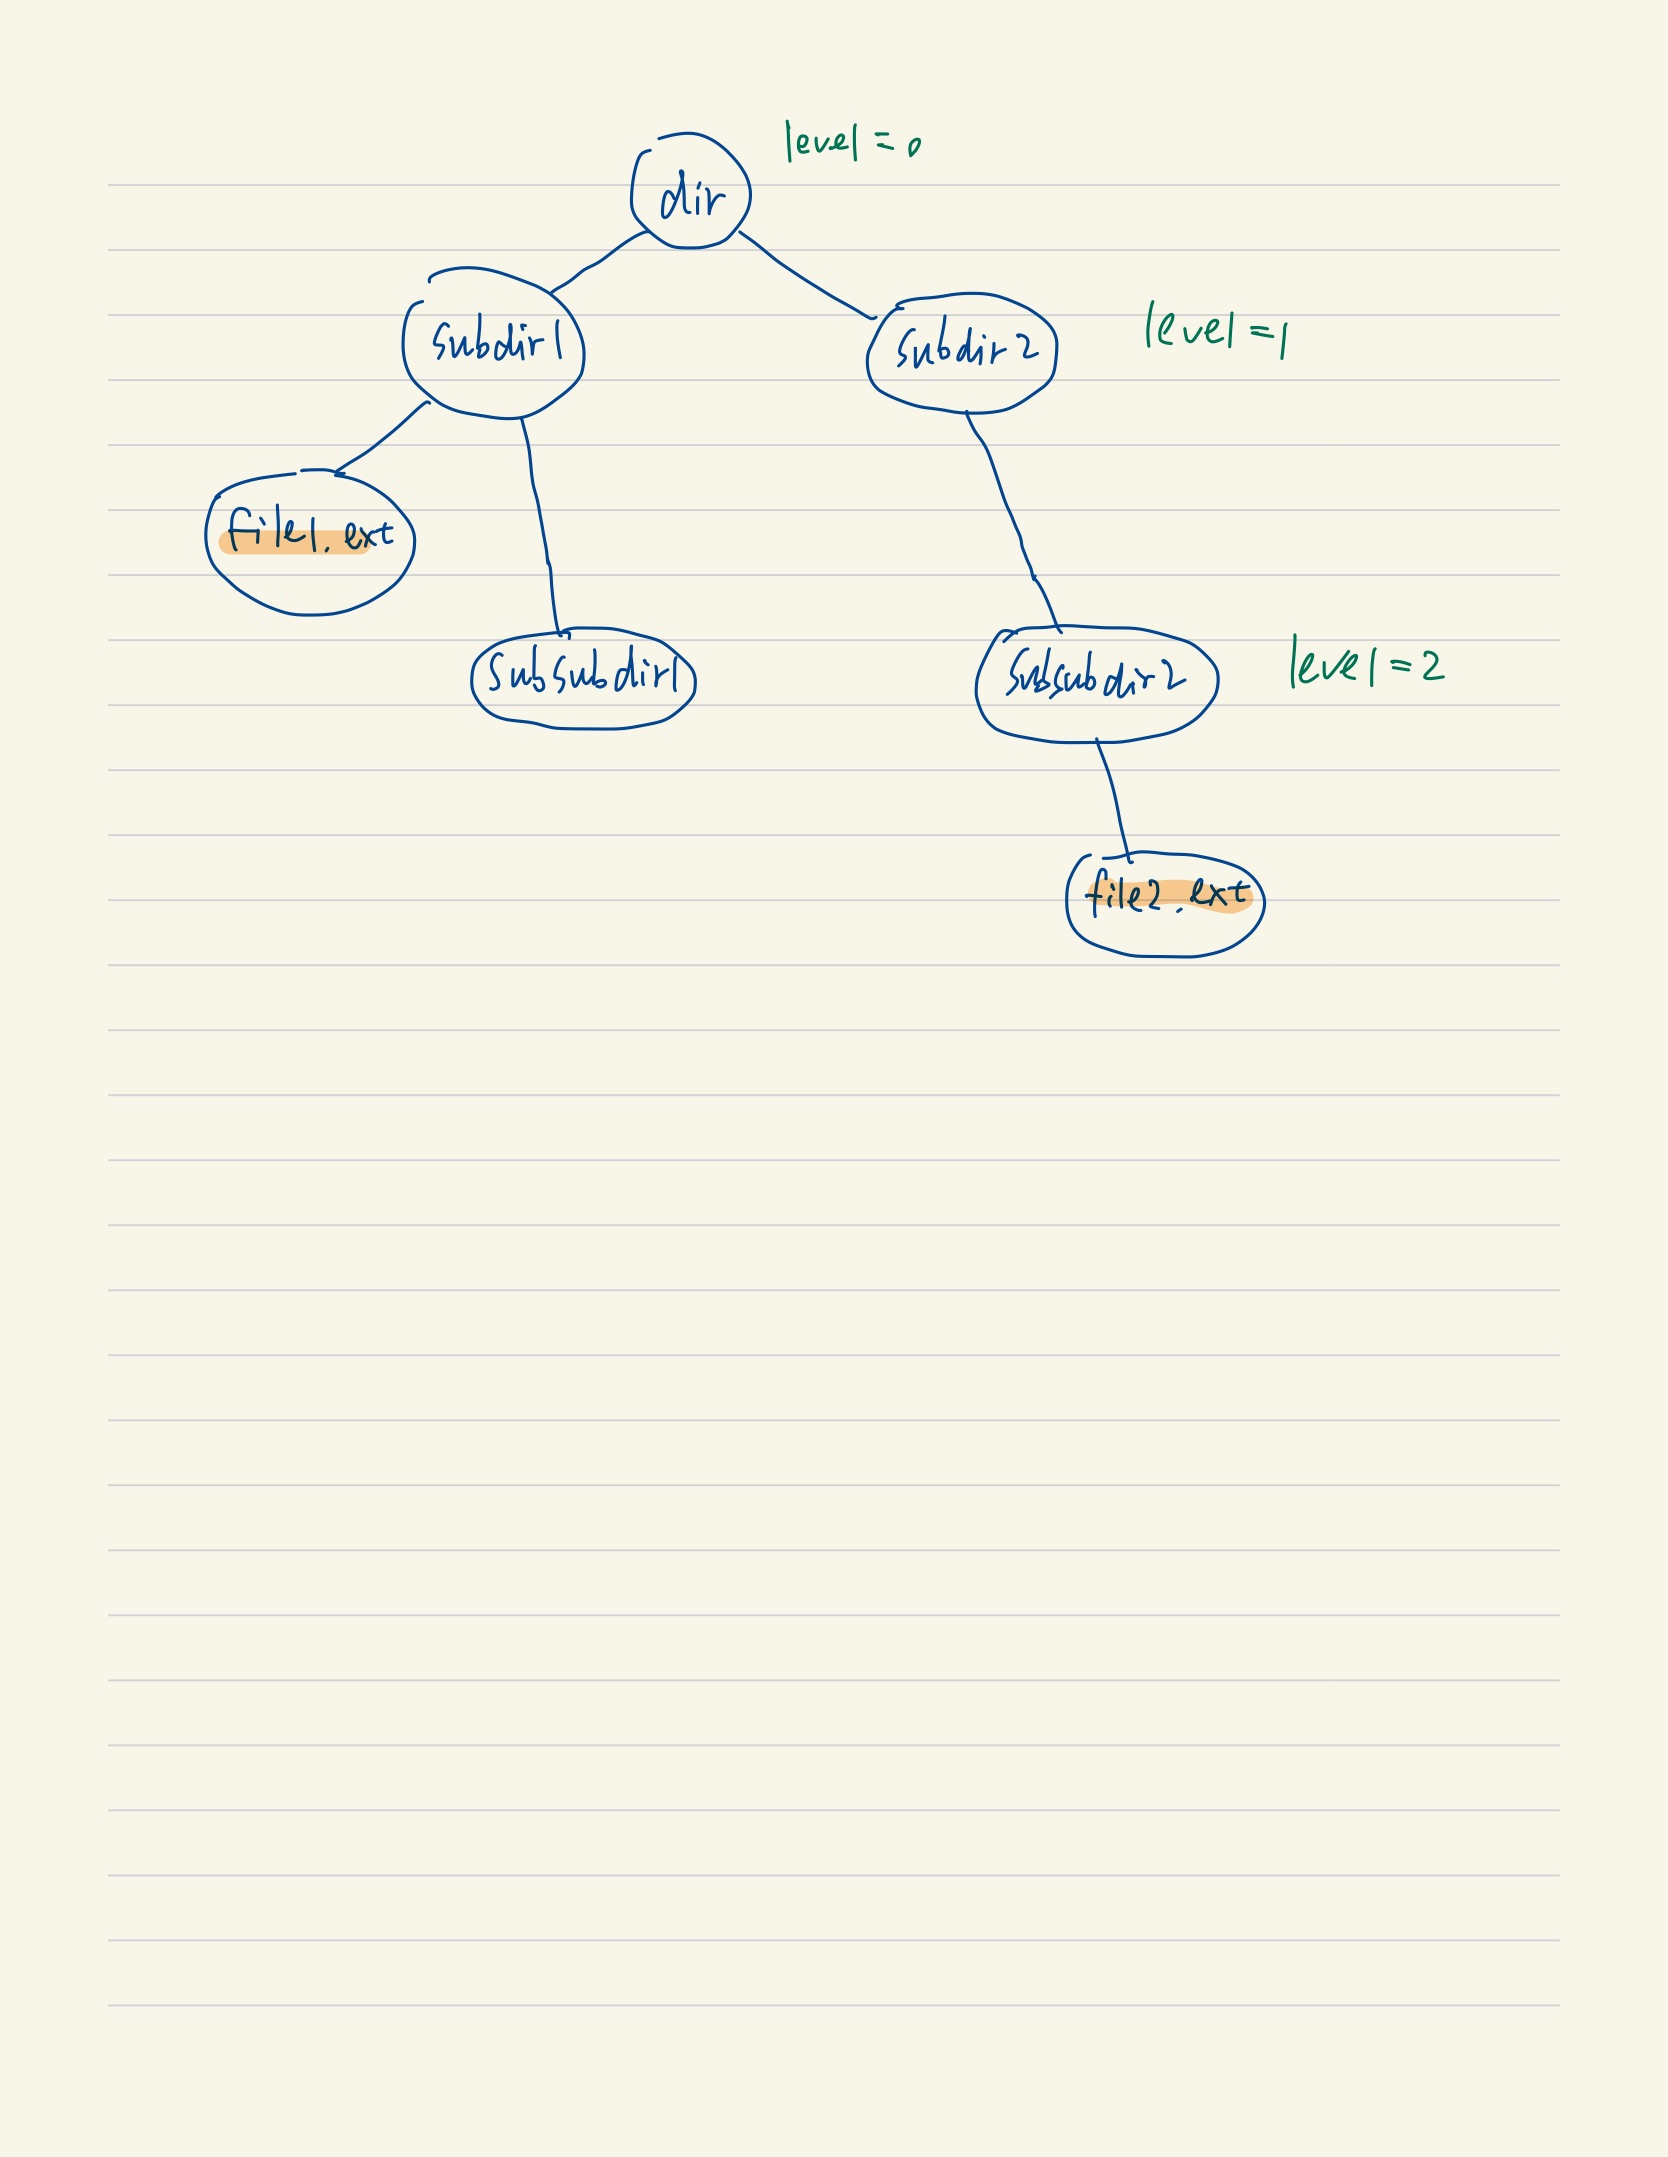 level = 0
dir
subdir1
subdir2
level = 1
file1.ext
subsubdir1
subsubdir2
level = 2
file2.ext